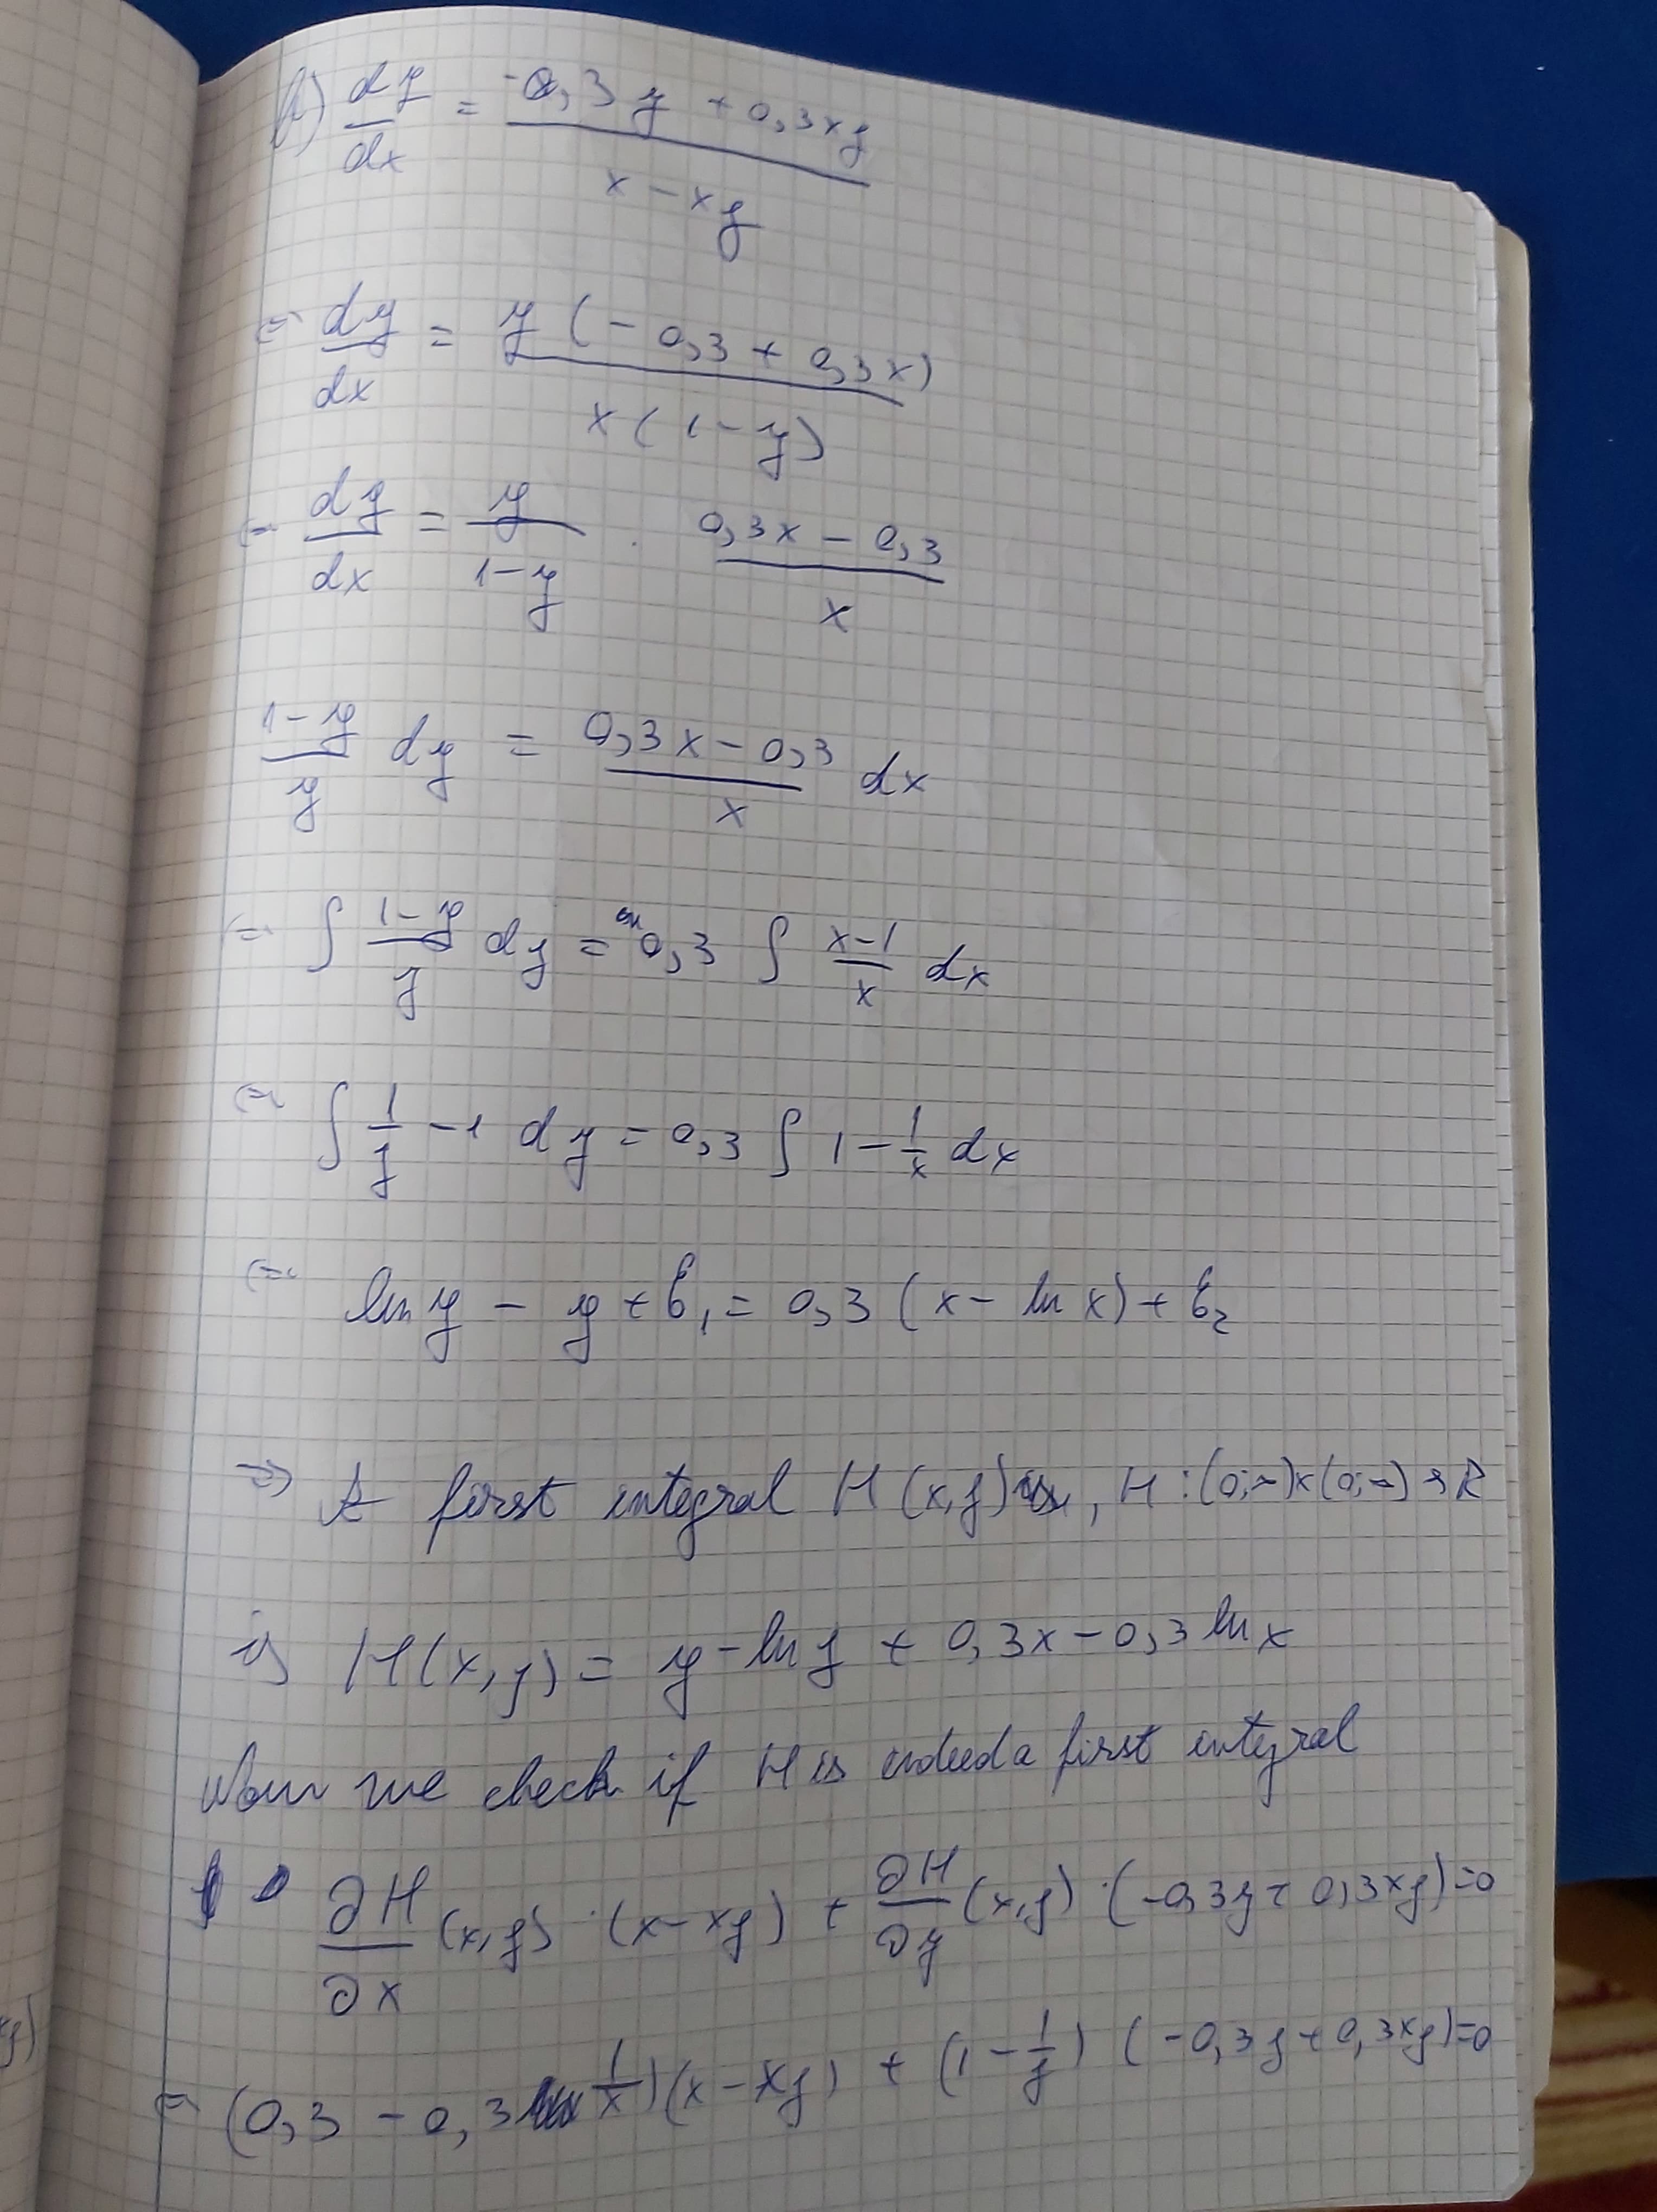 b) dy/dx = (-0,3y + 0,3xy)/(x - xy)
=> dy/dx = y(-0,3 + 0,3x)/(x(1-y))
=> dy/dx = y/(1-y) · (0,3x - 0,3)/x
(1-y)/y dy = (0,3x - 0,3)/x dx
=> ∫ (1-y)/y dy = 0,3 ∫ (x-1)/x dx
=> ∫ 1/y - 1 dy = 0,3 ∫ 1 - 1/x dx
=> ln y - y + C₁ = 0,3 (x - ln x) + C₂
=> A first integral H(x,y), H : (0;∞)×(0;∞) → R
is H(x,y) = y - ln y + 0,3x - 0,3 ln x
Now we check if H is indeed a first integral
∂H/∂x (x,y) · (x - xy) + ∂H/∂y (x,y) · (-0,3y + 0,3xy) = 0
=> (0,3 - 0,3 1/x)(x - xy) + (1 - 1/y) (-0,3y + 0,3xy) = 0